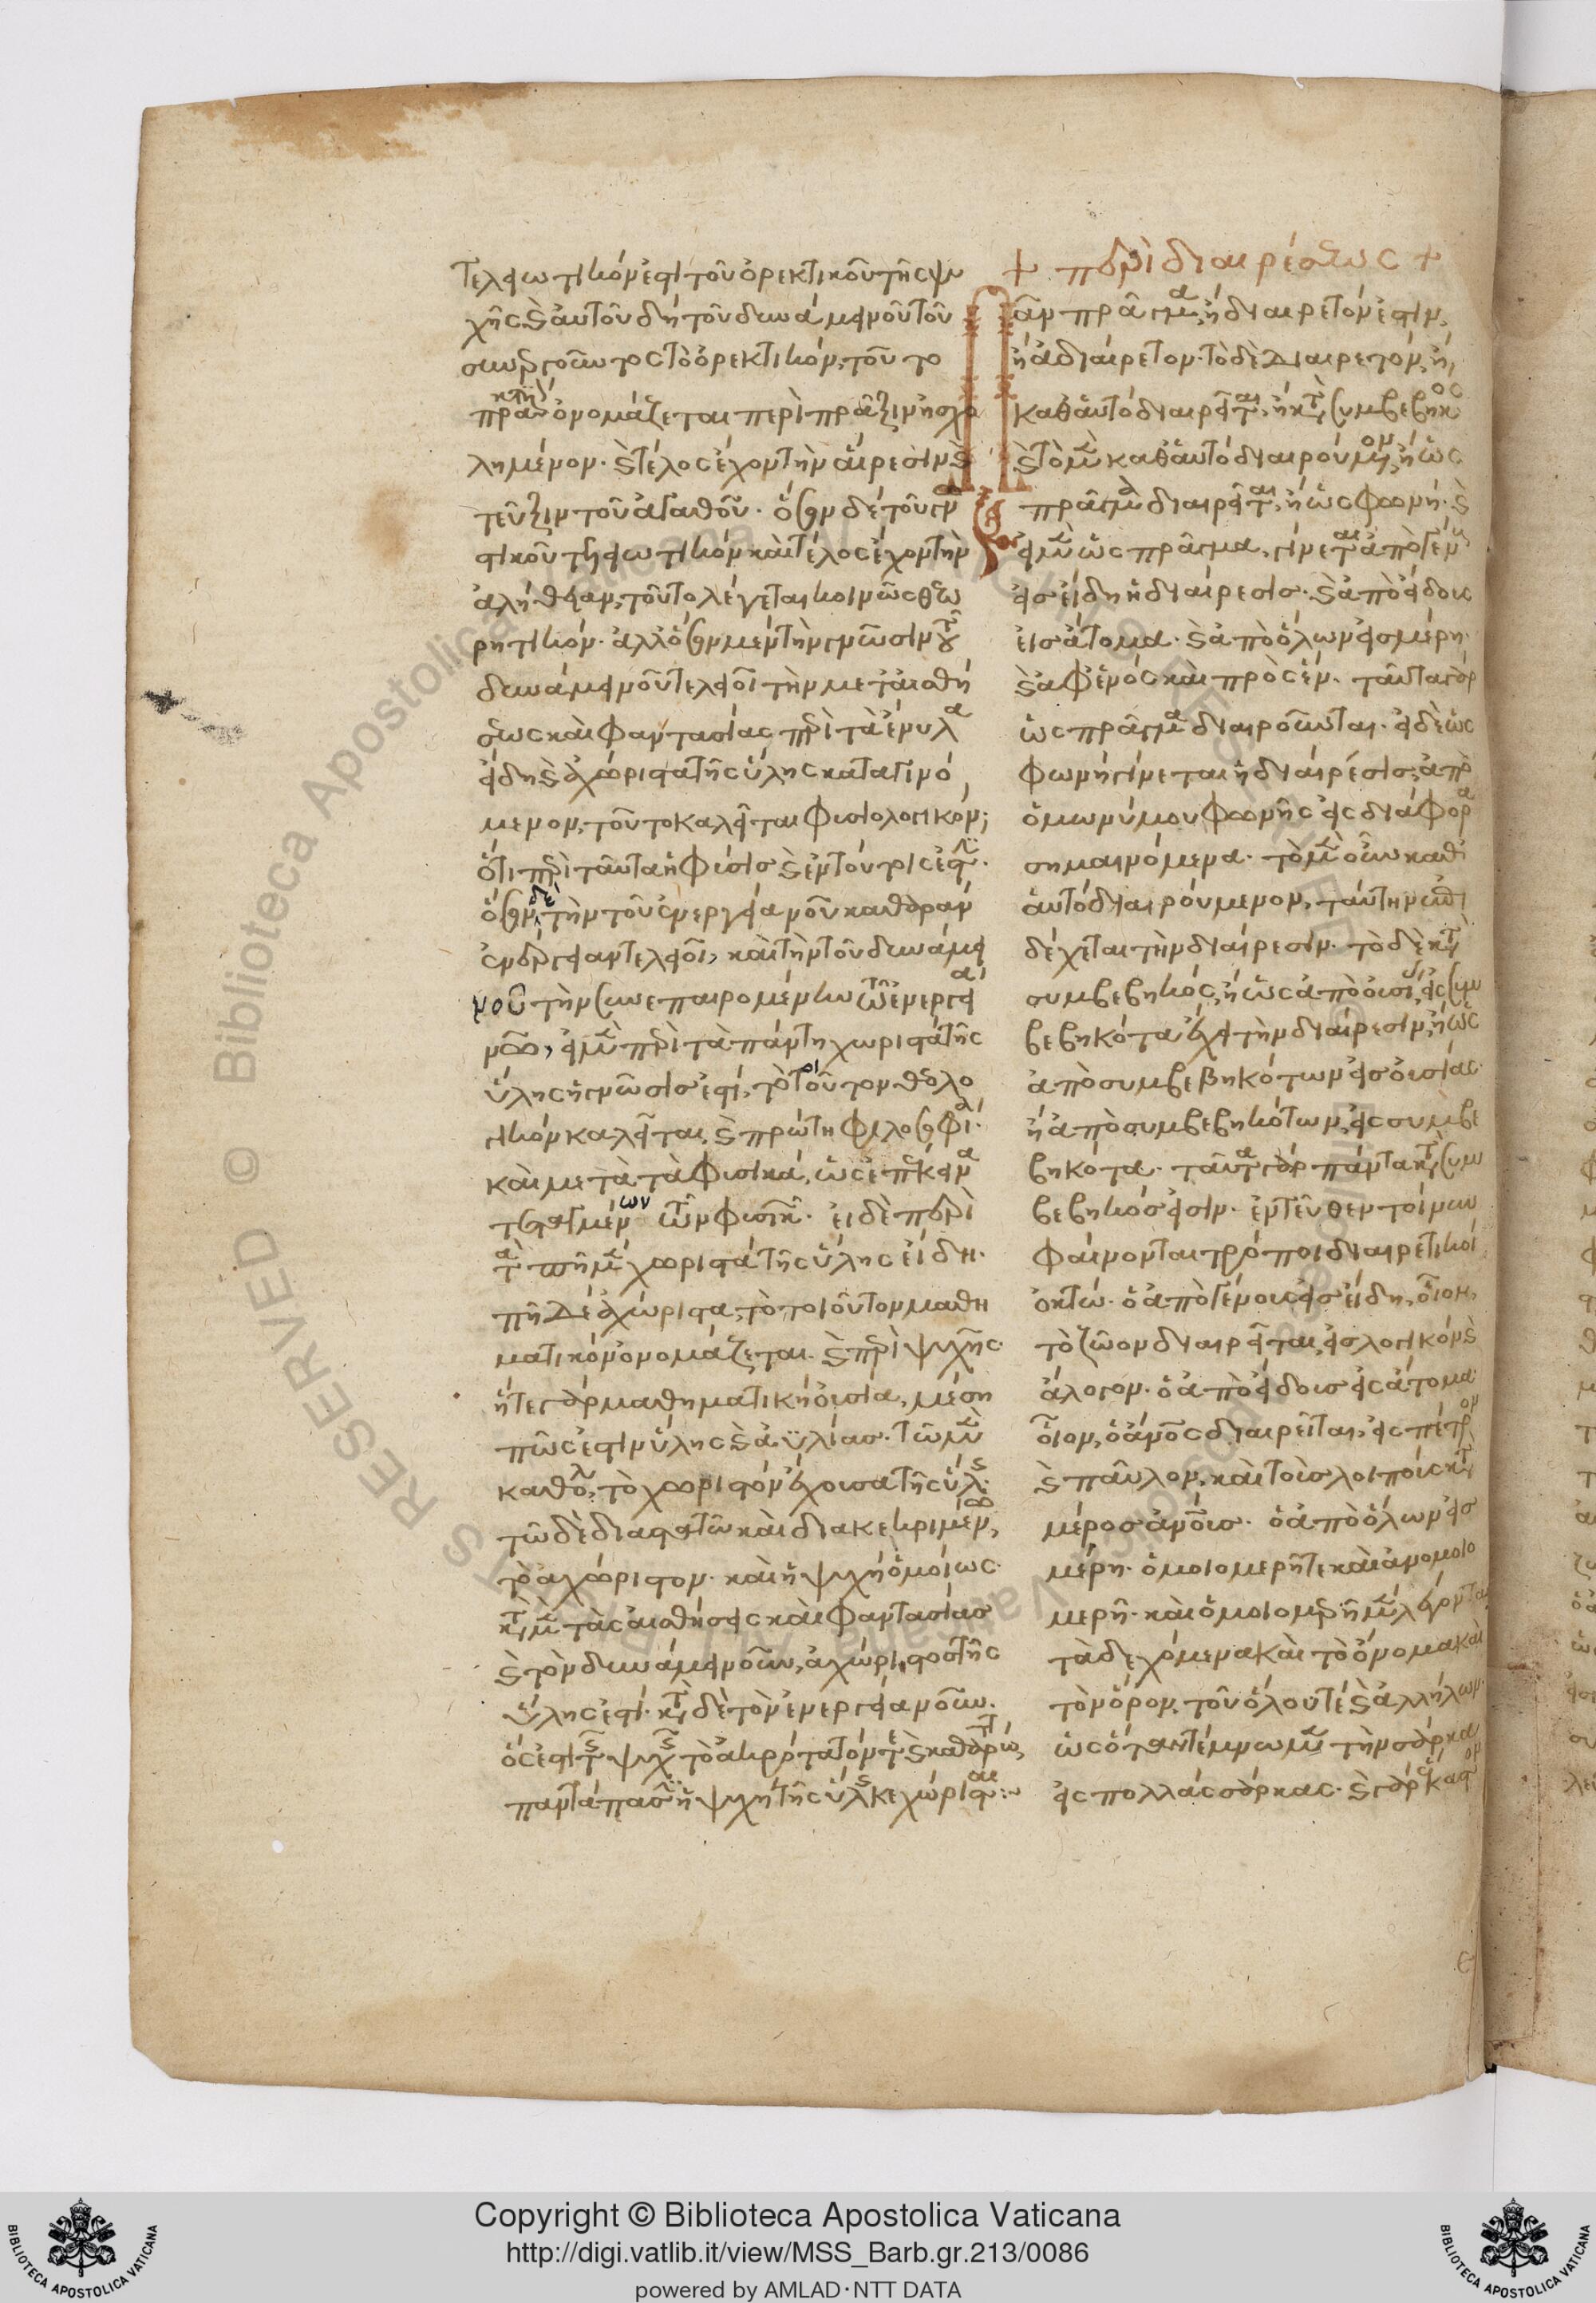 τελειωτικόν ἐστι τοῦ ὀρεκτικοῦ τῆς ψυ
χῆς καὶ αὐτοῦ δὴ τοῦ δυνάμει νοῦ τοῦ
ὀρεκτικόν, τοῦτο
πρακτικὸν ὀνομάζεται περὶ πρᾶξιν ἠσχο
λημένον. καὶ τέλος ἔχον τὴν αἵρεσιν καὶ
τεῦξιν τοῦ ἀγαθοῦ. ὅσον δὲ τοῦ γνω
στικοῦ τελειωτικὸν καὶ τέλος ἔχον τὴν
ἀλήθειαν, τοῦτο λέγεται κοινῶς θεω
ρητικόν. ἀλλ' ὅσον μὲν τὴν γνῶσιν τοῦ
δυνάμει νοῦ τελειοῖ τὴν μετ' αἰσθή
σεως καὶ φαντασίας περὶ τὰ ἔνυλα
εἴδη καὶ ἀχώριστα τῆς ὕλης καταγινό
μενον, τοῦτο καλεῖται φυσιολογικόν,
ὅτι περὶ ταῦτα ἡ φύσις καὶ ἐν τούτοις ἐστίν.
ὅσον δὲ τὴν τοῦ ἐνεργείᾳ νοῦ καθαρὰν
ἐνέργειαν τελειοῖ, καὶ τὴν τοῦ δυνάμει
νοῦ τὴν συνεπαιρομένην τῶ ἐνεργείᾳ
νῶ, εἰ μὲν περὶ τὰ πάντη χωριστὰ τῆς
ὕλης ἡ γνῶσις ἐστί, τὸ τοιοῦτον θεολο
γικὸν καλεῖται, καὶ πρώτη φιλοσοφία.
καὶ μετὰ τὰ φυσικά, ὡς ἐπέκεινα
τεταγμένων τῶν φυσικῶν. εἰ δὲ περὶ
τὰ πῆ μὲν χωριστὰ τῆς ὕλης εἴδη.
πῆ δὲ ἀχώριστα, τὸ τοιοῦτον μαθη
ματικὸν ὀνομάζεται. καὶ περὶ ψυχῆς.
ἥ τε γὰρ μαθηματικὴ οὐσία, μέση
πῶς ἐστιν ὕλης καὶ ἀϋλίας. τῶ μὲν
καθόλου, τὸ χωριστὸν ἔχουσα τῆς ὕλης.
τῶ δὲ διαστατῶ καὶ διακεκριμένω,
τὸ ἀχώριστον. καὶ ἡ ψυχὴ ὁμοίως.
κατὰ μὲν τὰς αἰσθήσεις καὶ φαντασίας
καὶ τὸν δυνάμει νοῦν, ἀχώριστος τῆς
ὕλης ἐστί. κατὰ δὲ τὸν ἐνεργείᾳ νοῦν.
ὅς ἐστι τῆς ψυχῆς τὸ ἀκρότατόν τε καὶ καθαρώτατον,
παντάπασιν ἡ ψυχὴ τῆς ὕλης κεχώρισται:~
+ περὶ διαιρέσεως +
Πᾶν πρᾶγμα, ἢ διαιρετόν ἐστιν,
ἢ ἀδιαίρετον. τὸ δὲ διαιρετόν, ἢ
καθ' αὑτὸ διαιρεῖται, ἢ κατὰ συμβεβηκός
καὶ τὸ μὲν καθ' αὑτὸ διαιρούμενον, ἢ ὡς
πρᾶγμα διαιρεῖται, ἢ ὡς φωνή. καὶ
εἰ μὲν ὡς πρᾶγμα, γίνεται ἀπὸ γένους
εἰς εἴδη ἡ διαίρεσις. καὶ ἀπὸ εἴδους
εἰς ἄτομα. καὶ ἀπὸ ὅλων εἰς μέρη.
καὶ ἀφ' ἑνὸς καὶ πρὸς ἕν. ταῦτα γὰρ
ὡς πρᾶγμα διαιροῦνται. εἰ δὲ ὡς
φωνὴ γίνεται ἡ διαίρεσις, ἀπὸ
ὁμωνύμου φωνῆς εἰς διάφορα
σημαινόμενα. τὸ μὲν οὖν καθ'
αὑτὸ διαιρούμενον, ταύτην
δέχεται τὴν διαίρεσιν. τὸ δὲ κατὰ
συμβεβηκός, ἢ ὡς ἀπὸ οὐσίας εἰς συμ
βεβηκότα ἔχει τὴν διαίρεσιν, ἢ ὡς
ἀπὸ συμβεβηκότων εἰς οὐσίας.
ἢ ἀπὸ συμβεβηκότων, εἰς συμβε
βηκότα. ταῦτα γὰρ πάντα κατὰ συμ
βεβηκός εἰσιν. ἐντεῦθεν τοίνυν
φαίνονται τρόποι διαιρετικοί
ὀκτώ. ὁ ἀπὸ γένους εἰς εἴδη, οἷον,
τὸ ζῶον διαιρεῖται, εἰς λογικὸν καὶ
ἄλογον. ὁ ἀπὸ εἴδους εἰς ἄτομα
οἷον, ὁ ἄνθρωπος διαιρεῖται, εἰς πέτρον
καὶ παῦλον, καὶ τοὺς λοιποὺς κατὰ
μέρος ἀνθρώπους. ὁ ἀπὸ ὅλων εἰς
μέρη. ὁμοιομερῆ τε καὶ ἀνομοιο
μερῆ. καὶ ὁμοιομερῆ μὲν λέγονται
τὰ δεχόμενα καὶ τὸ ὄνομα καὶ
τὸν ὅρον, τοῦ ὅλου τὲ καὶ ἀλλήλων.
ὡς ὅταν τέμνωμεν τὴν σάρκα
εἰς πολλὰς σάρκας. καὶ γὰρ ἕκαστον
Copyright © Biblioteca Apostolica Vaticana
http://digi.vatlib.it/view/MSS_Barb.gr.213/0086
powered by AMLAD·NTT DATA